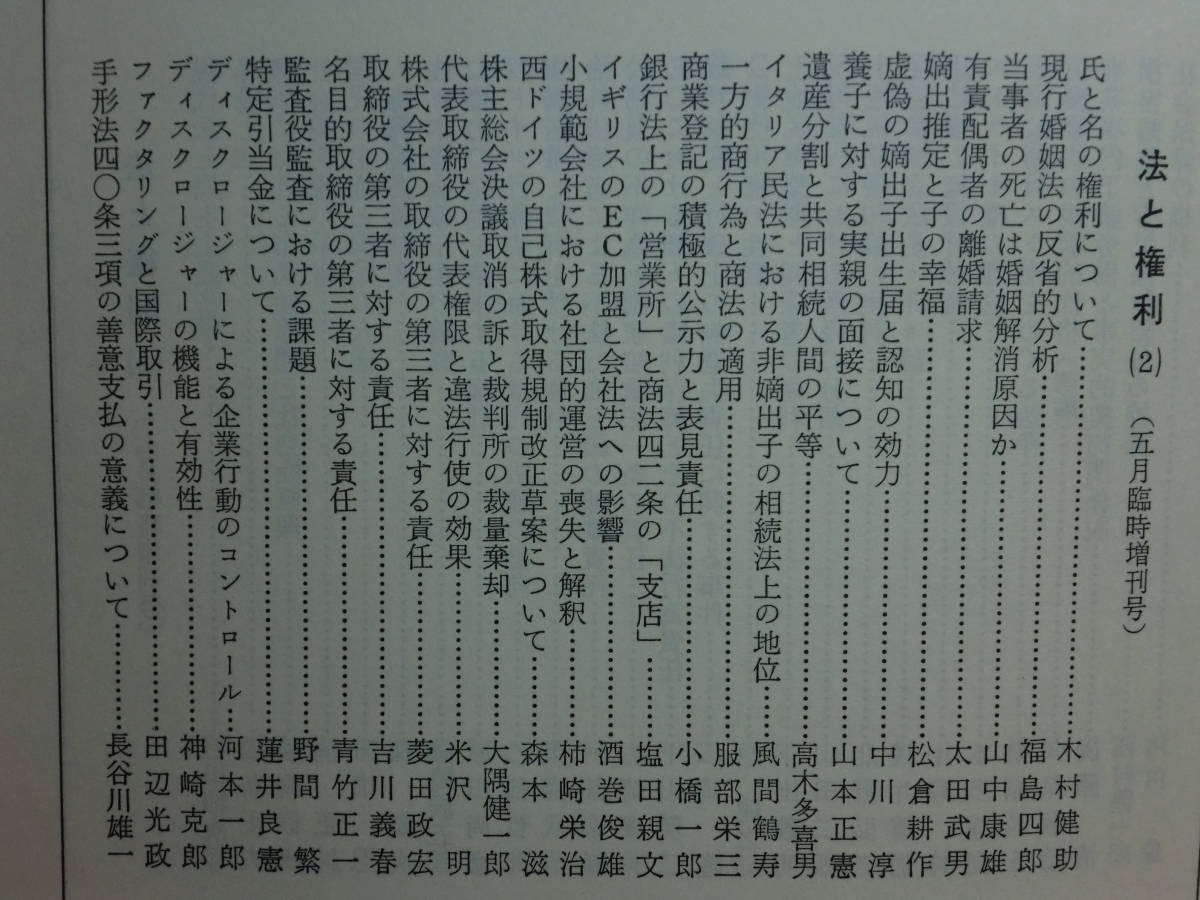 法と権利(2) (五月臨時増刊号)
氏と名の権利について……………木村健助
現行婚姻法の反省的分析……………福島四郎
当事者の死亡は婚姻解消原因か……………山中康雄
有責配偶者の離婚請求……………太田武男
嫡出推定と子の幸福……………松倉耕作
虚偽の嫡出子出生届と認知の効力……………中川 淳
養子に対する実親の面接について……………山本正憲
遺産分割と共同相続人間の平等……………高木多喜男
イタリア民法における非嫡出子の相続法上の地位……風間鶴寿
一方的商行為と商法の適用……………服部栄三
商業登記の積極的公示力と表見責任……………小橋一郎
銀行法上の「営業所」と商法四二条の「支店」……塩田親文
イギリスのEC加盟と会社法への影響……………酒巻俊雄
小規範会社における社団的運営の喪失と解釈………柿崎栄治
西ドイツの自己株式取得規制改正草案について……森本 滋
株主総会決議取消の訴と裁判所の裁量棄却…………大隅健一郎
代表取締役の代表権限と違法行使の効果……………米沢 明
株式会社の取締役の第三者に対する責任……………菱田政宏
取締役の第三者に対する責任……………吉川義春
名目的取締役の第三者に対する責任……………青竹正一
監査役監査における課題……………野間 繁
特定引当金について……………蓮井良憲
ディスクロージャーによる企業行動のコントロール…河本一郎
ディスクロージャーの機能と有効性……………神崎克郎
ファクタリングと国際取引……………田辺光政
手形法四〇条三項の善意支払の意義について………長谷川雄一